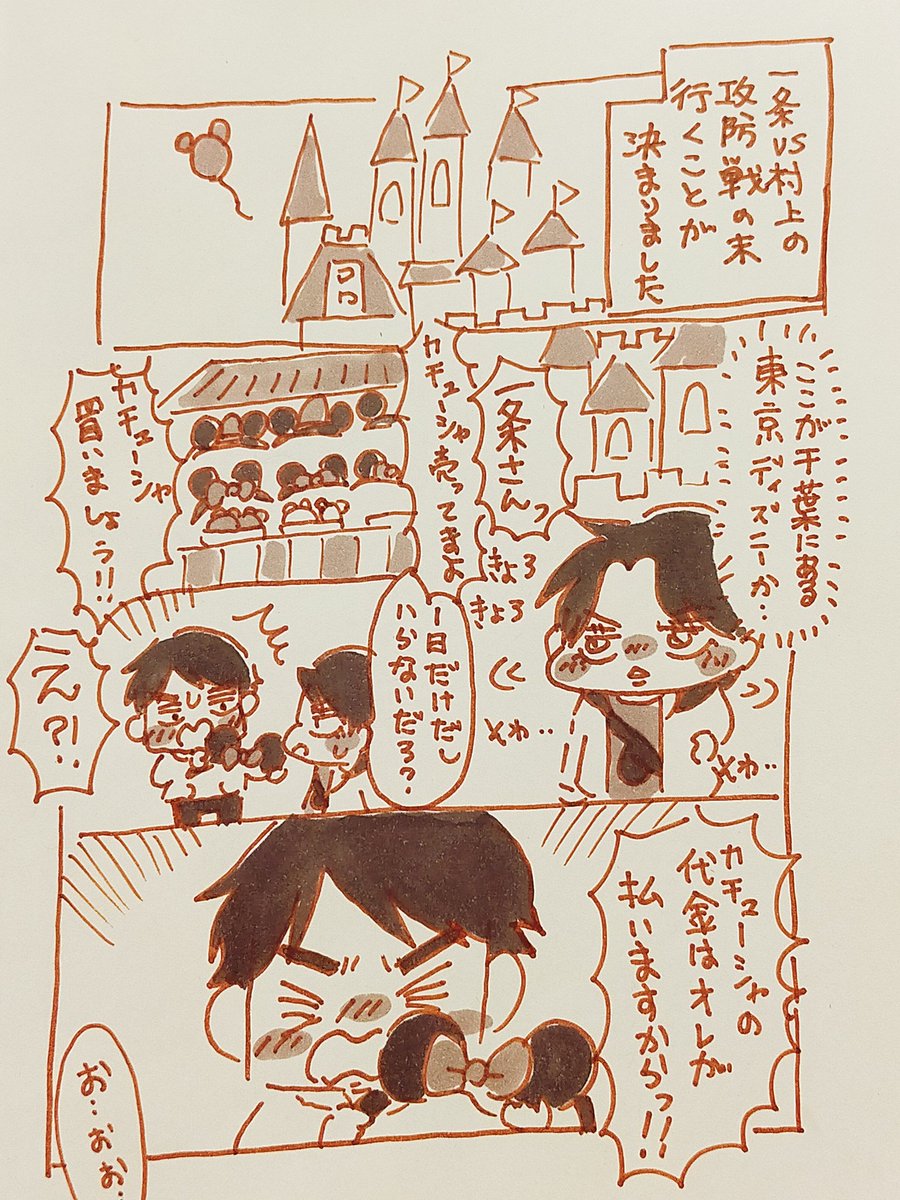 一条vs村上の
攻防戦の末
行くことが
決まりました
ここが千葉にある
東京ディズニーか…
きょろ
きょろ
そわ‥
そわ‥
一条さんっ
カチューシャ売ってますよ
カチューシャ
買いましょう!!
一日だけだし
いらないだろ?
えん?!
カチューシャの
代金はオレが
払いますからっ!!
お…おお‥